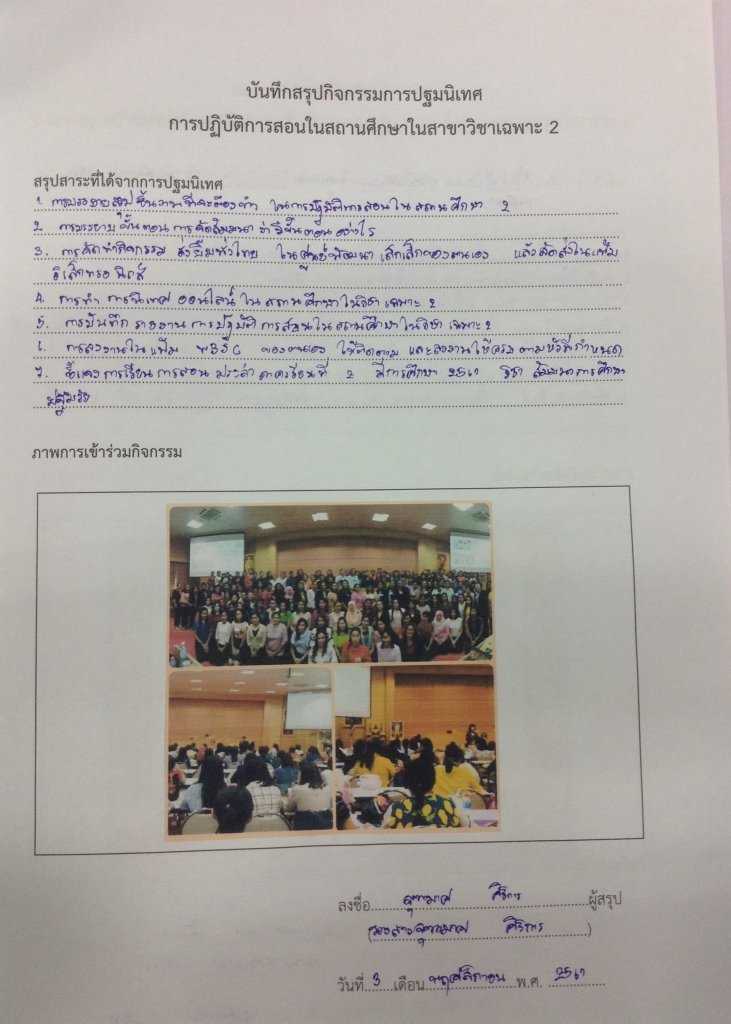 บันทึกสรุปกิจกรรมการปฐมนิเทศ
การปฏิบัติการสอนในสถานศึกษาในสาขาวิชาเฉพาะ 2
สรุปสาระที่ได้จากการปฐมนิเทศ
1. การบรรยายสรุปชิ้นงานที่จะต้องทำ ในการปฏิบัติการสอนใน สถานศึกษา 2
2. การบรรยาย ขั้นตอน การจัดสัมมนา ว่ามีขั้นตอนอย่างไร
3. การจัดทำกิจกรรม ส่งยิ้มทั่วไทย ในศูนย์พัฒนาเด็กเล็กของตนเอง แล้วจัดส่งในแฟ้ม
อิเล็กทรอนิกส์
4. การทำ การนิเทศ ออนไลน์ ใน สถานศึกษาในวิชาเฉพาะ 2
5. การบันทึก รายงาน การปฏิบัติ การสอนในสถานศึกษาในวิชา เฉพาะ 2
6. การส่งงานใน แฟ้ม ของตนเอง ให้ติดตาม และส่งงานให้ครบ ตามหัวที่กำหนด
7. ชี้แจง การเรียน การสอน ประจำ ภาคเรียนที่ 2 ปีการศึกษา 2561 วิชา สัมมนาการศึกษา
ปฐมวัย
ภาพการเข้าร่วมกิจกรรม
ลงชื่อ จุฑามาศ ผู้สรุป
(นางสาวจุฑามาศ )
วันที่ 3 เดือน พฤศจิกายน พ.ศ. 2561